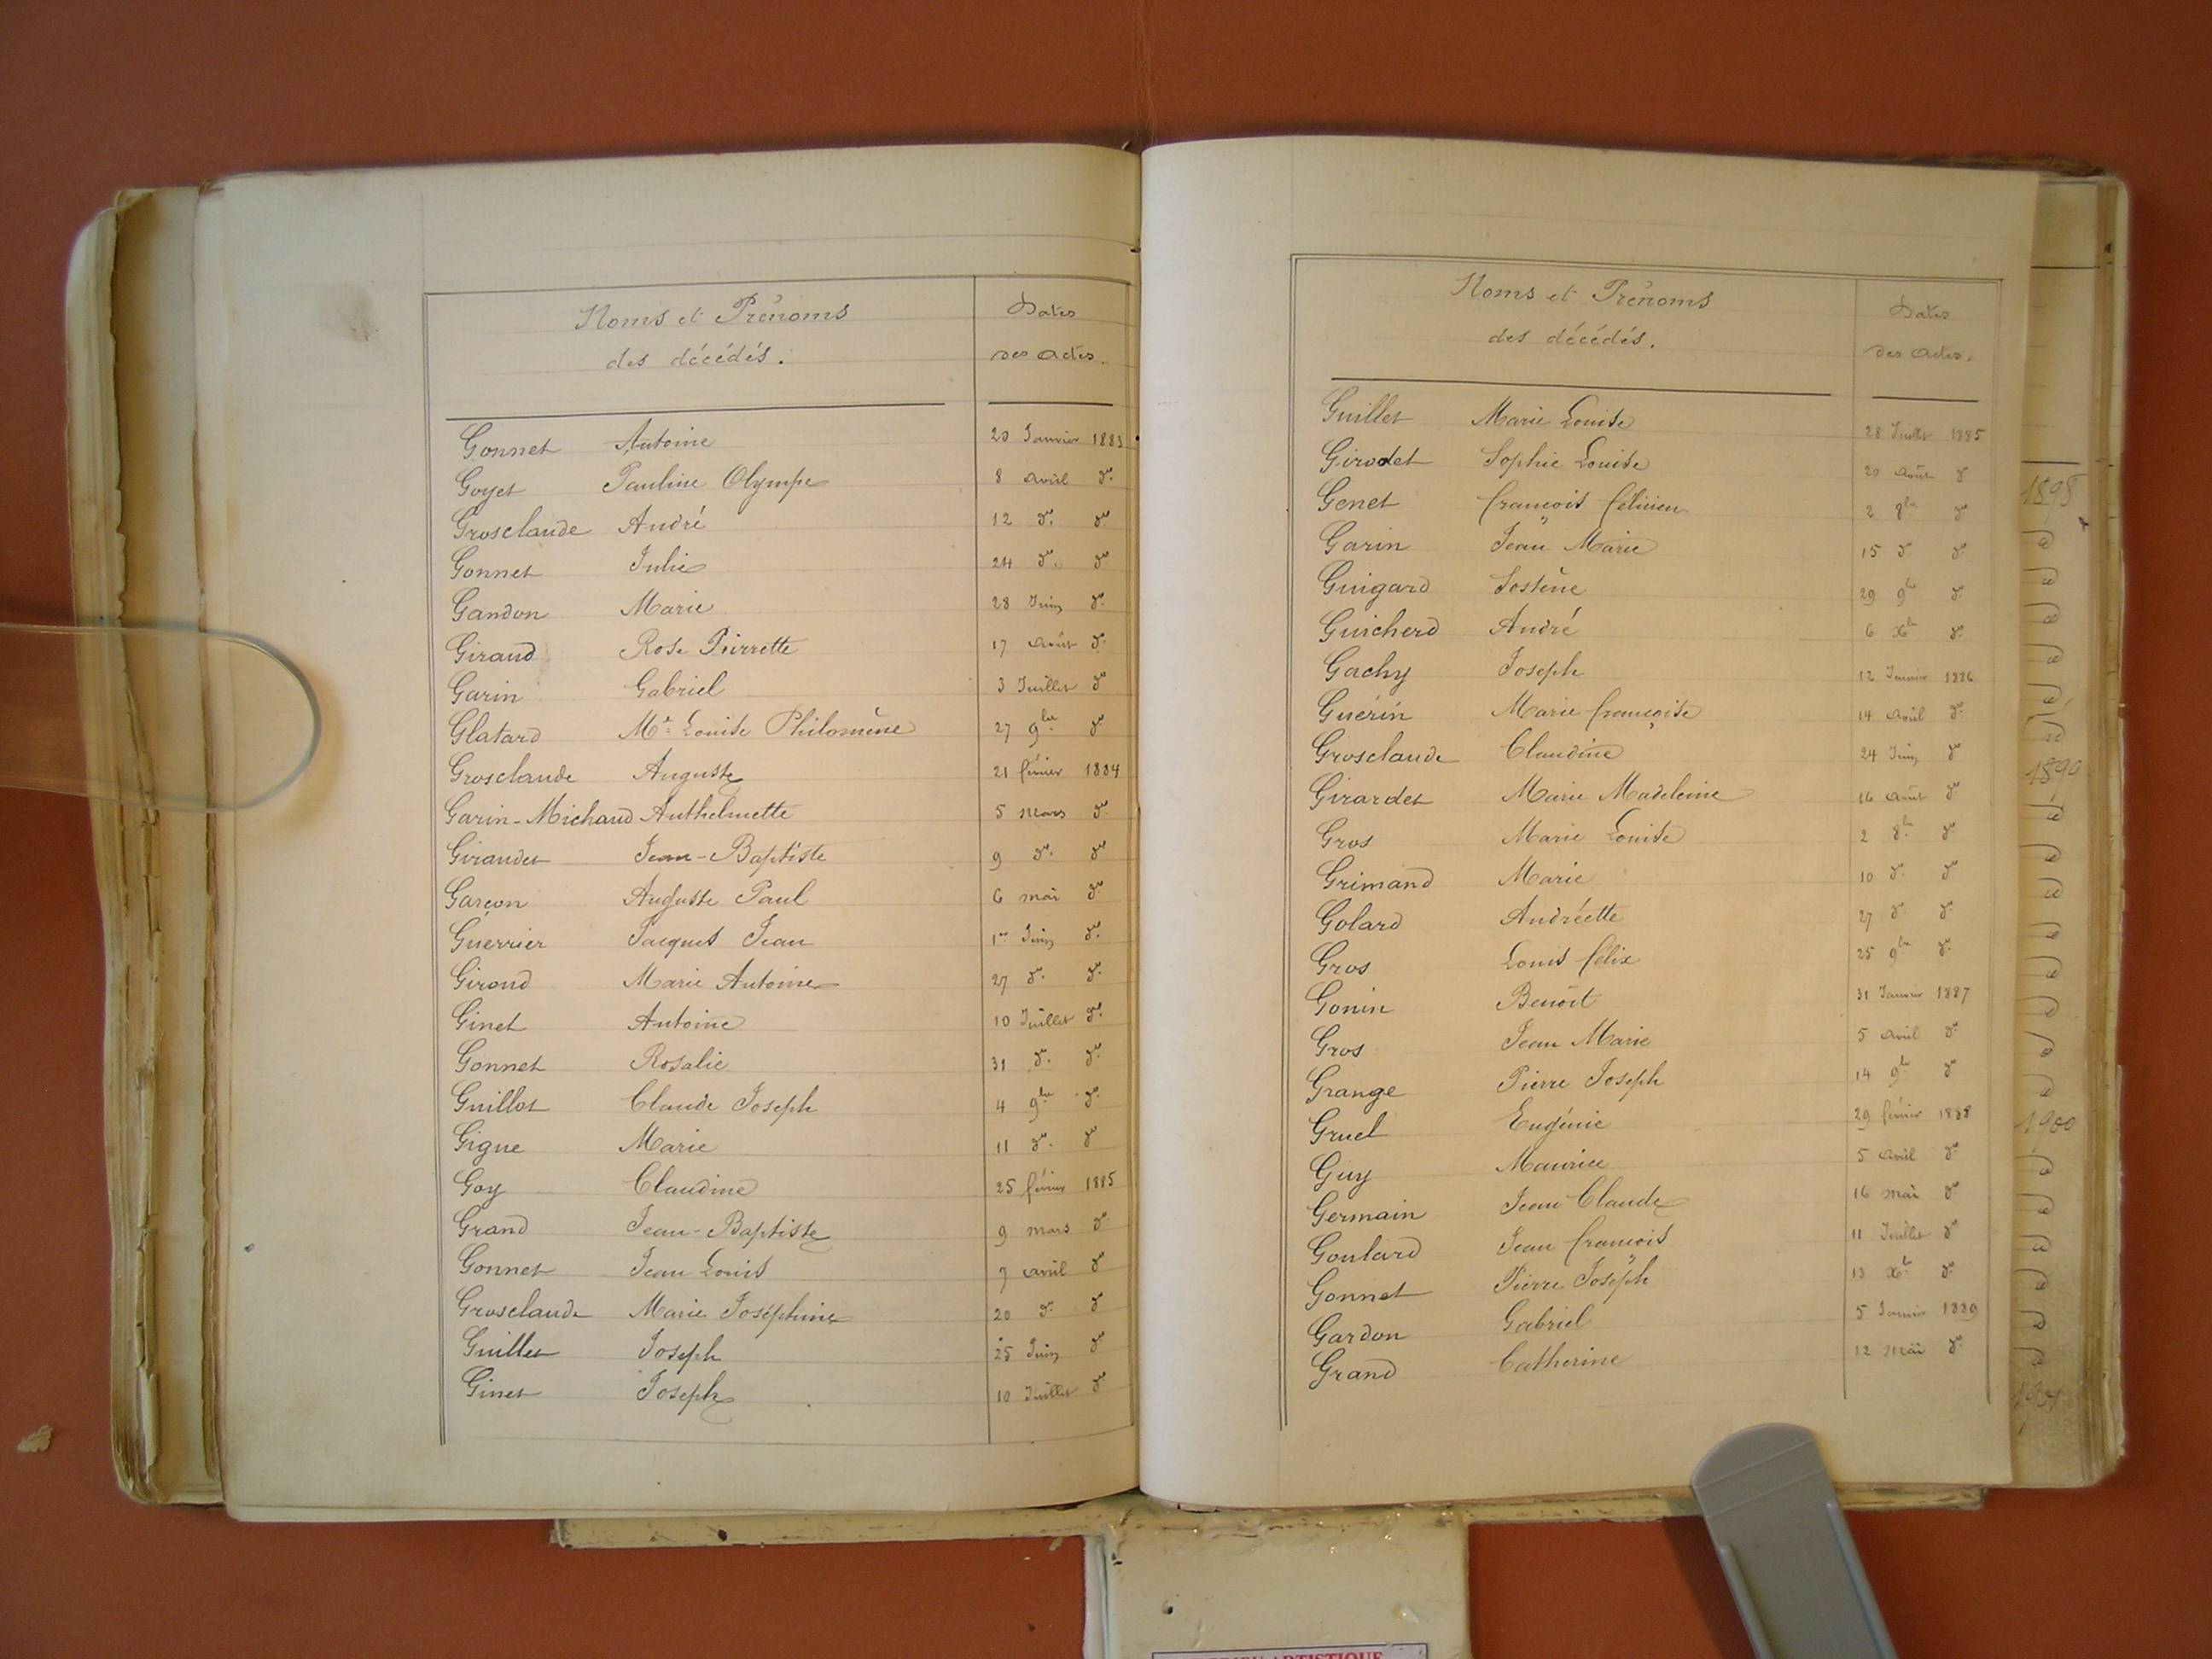 Noms et Prénoms
des décédés.
Dates
des actes.
Gonnet Antoine 20 Janvier 1883
Goyet Pauline Olympe 8 avril do
Grosclaude André 12 do do
Gonnet Julie 24 do do
Gandon Marie 28 Juin do
Giraud Rose Pierrette 17 août do
Garin Gabriel 3 Juillet do
Glatard Me Louise Philomène 27 9bre do
Grosclaude Auguste 21 février 1884
Garin-Michaud Anthelmette 5 mars do
Giraudet Jean-Baptiste 9 do do
Garçon Auguste Paul 6 mai do
Guerrier Jacques Jean 1er Juin do
Girond Marie Antoine 27 do do
Ginet Antoine 10 Juillet do
Gonnet Rosalie 31 do do
Guillot Claude Joseph 4 9bre do
Gigne Marie 11 do do
Goy Claudine 25 février 1885
Grand Jean-Baptiste 9 mars do
Gonnet Jean Louis 7 avril do
Grosclaude Marie Joséphine 20 do do
Guillet Joseph 25 Juin do
Ginet Joseph 10 Juillet do
Noms et Prénoms
des décédés.
Dates
des actes.
Guillet Marie Louise 28 Juillet 1885
Girodet Sophie Louise 20 août do
Genet françois félicien 2 8bre do
Garin Jean Marie 15 do do
Guigard Sostène 29 9bre do
Guicherd André 6 Xbre do
Gachy Joseph 12 Janvier 1886
Guérin Marie françoise 14 avril do
Grosclaude Claudine 24 Juin do
Girardet Marie Madeleine 16 août do
Gros Marie Louise 2 8bre do
Grimand Marie 10 do do
Golard Andréette 27 do do
Gros Louis félix 25 9bre do
Gonin Benoît 31 Janvier 1887
Gros Jean Marie 5 avril do
Grange Pierre Joseph 14 9bre do
Gruel Eugénie 29 février 1888
Guy Maurice 5 avril do
Germain Jean Claude 16 mai do
Goulard Jean françois 11 Juillet do
Gonnet Pierre Joseph 13 Xbre do
Gardon Gabriel 5 Janvier 1889
Grand Catherine 12 mai do
1898
1890
1900
1901